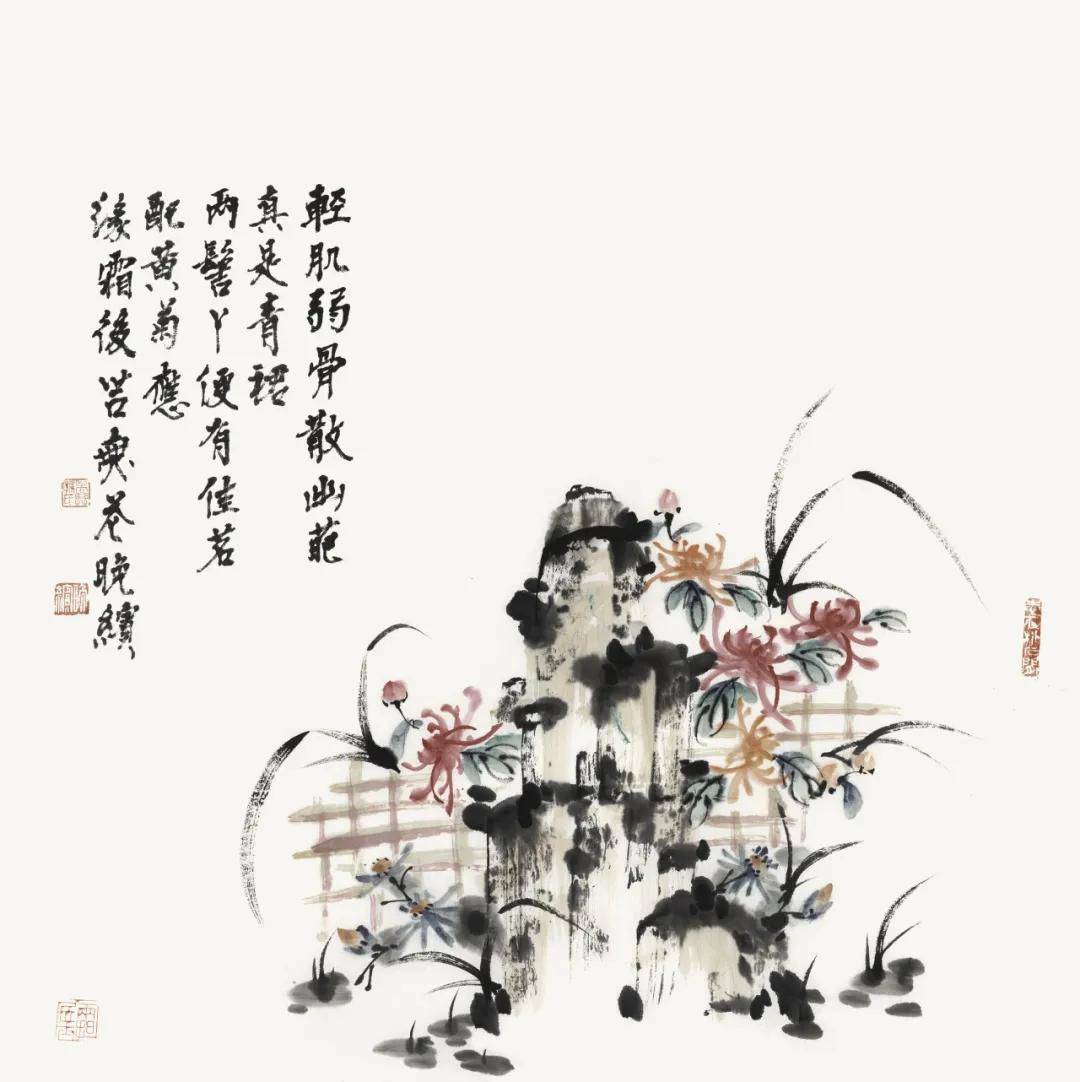 輕肌弱骨散幽葩
真是青裙
兩髻丫便有佳茗
配黃菊應
緣霜後苦無花晚繽